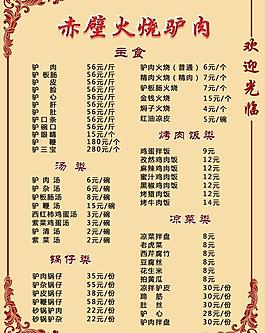 赤壁火烧驴肉
欢迎光临
主食
驴肉 56元/斤
驴板肠 56元/斤
驴皮 56元/斤
驴脸 56元/斤
驴心 56元/斤
驴肝 56元/斤
驴肚 56元/斤
驴口条 56元/斤
驴碗口 56元/斤
驴眼睛 56元/斤
驴鞭 180元/个
驴三宝 280元/个
驴肉火烧（普通） 6元/个
精肉火烧（精肉） 7元/个
驴板肠火烧 7元/个
金钱火烧 15元/个
焖子火烧 4元/个
红油凉皮 5元/碗
汤类
驴肉汤 6元/碗
驴杂汤 6元/碗
驴板肠汤 8元/碗
驴鞭汤 15元/碗
西红柿鸡蛋汤 3元/碗
紫菜鸡蛋汤 3元/碗
驴清汤 2元/碗
紫菜汤 2元/碗
烤肉饭类
鸡蛋拌饭 9元
孜然鸡肉饭 12元
麻辣鸡肉饭 12元
蜜汁鸡肉饭 12元
黑椒鸡肉饭 12元
烤猪肉饭 12元
烤牛肉饭 14元
锅仔类
驴肉锅仔 35元/份
驴杂锅仔 35元/份
驴皮锅仔 38元/份
驴板肠锅仔 38元/份
驴三样锅仔 55元/份
砂锅驴肉 22元/份
砂锅驴杂 22元/份
凉菜类
凉菜拌盘 8元
老虎菜 8元
西芹腐竹 8元
豆腐丝 8元
花生米 8元
拍黄瓜 8元
凉拌驴皮 30元/份
蹄筋 30元/份
肚丝 30元/份
驴心 30元/份
肉凉拌盘 28元/份